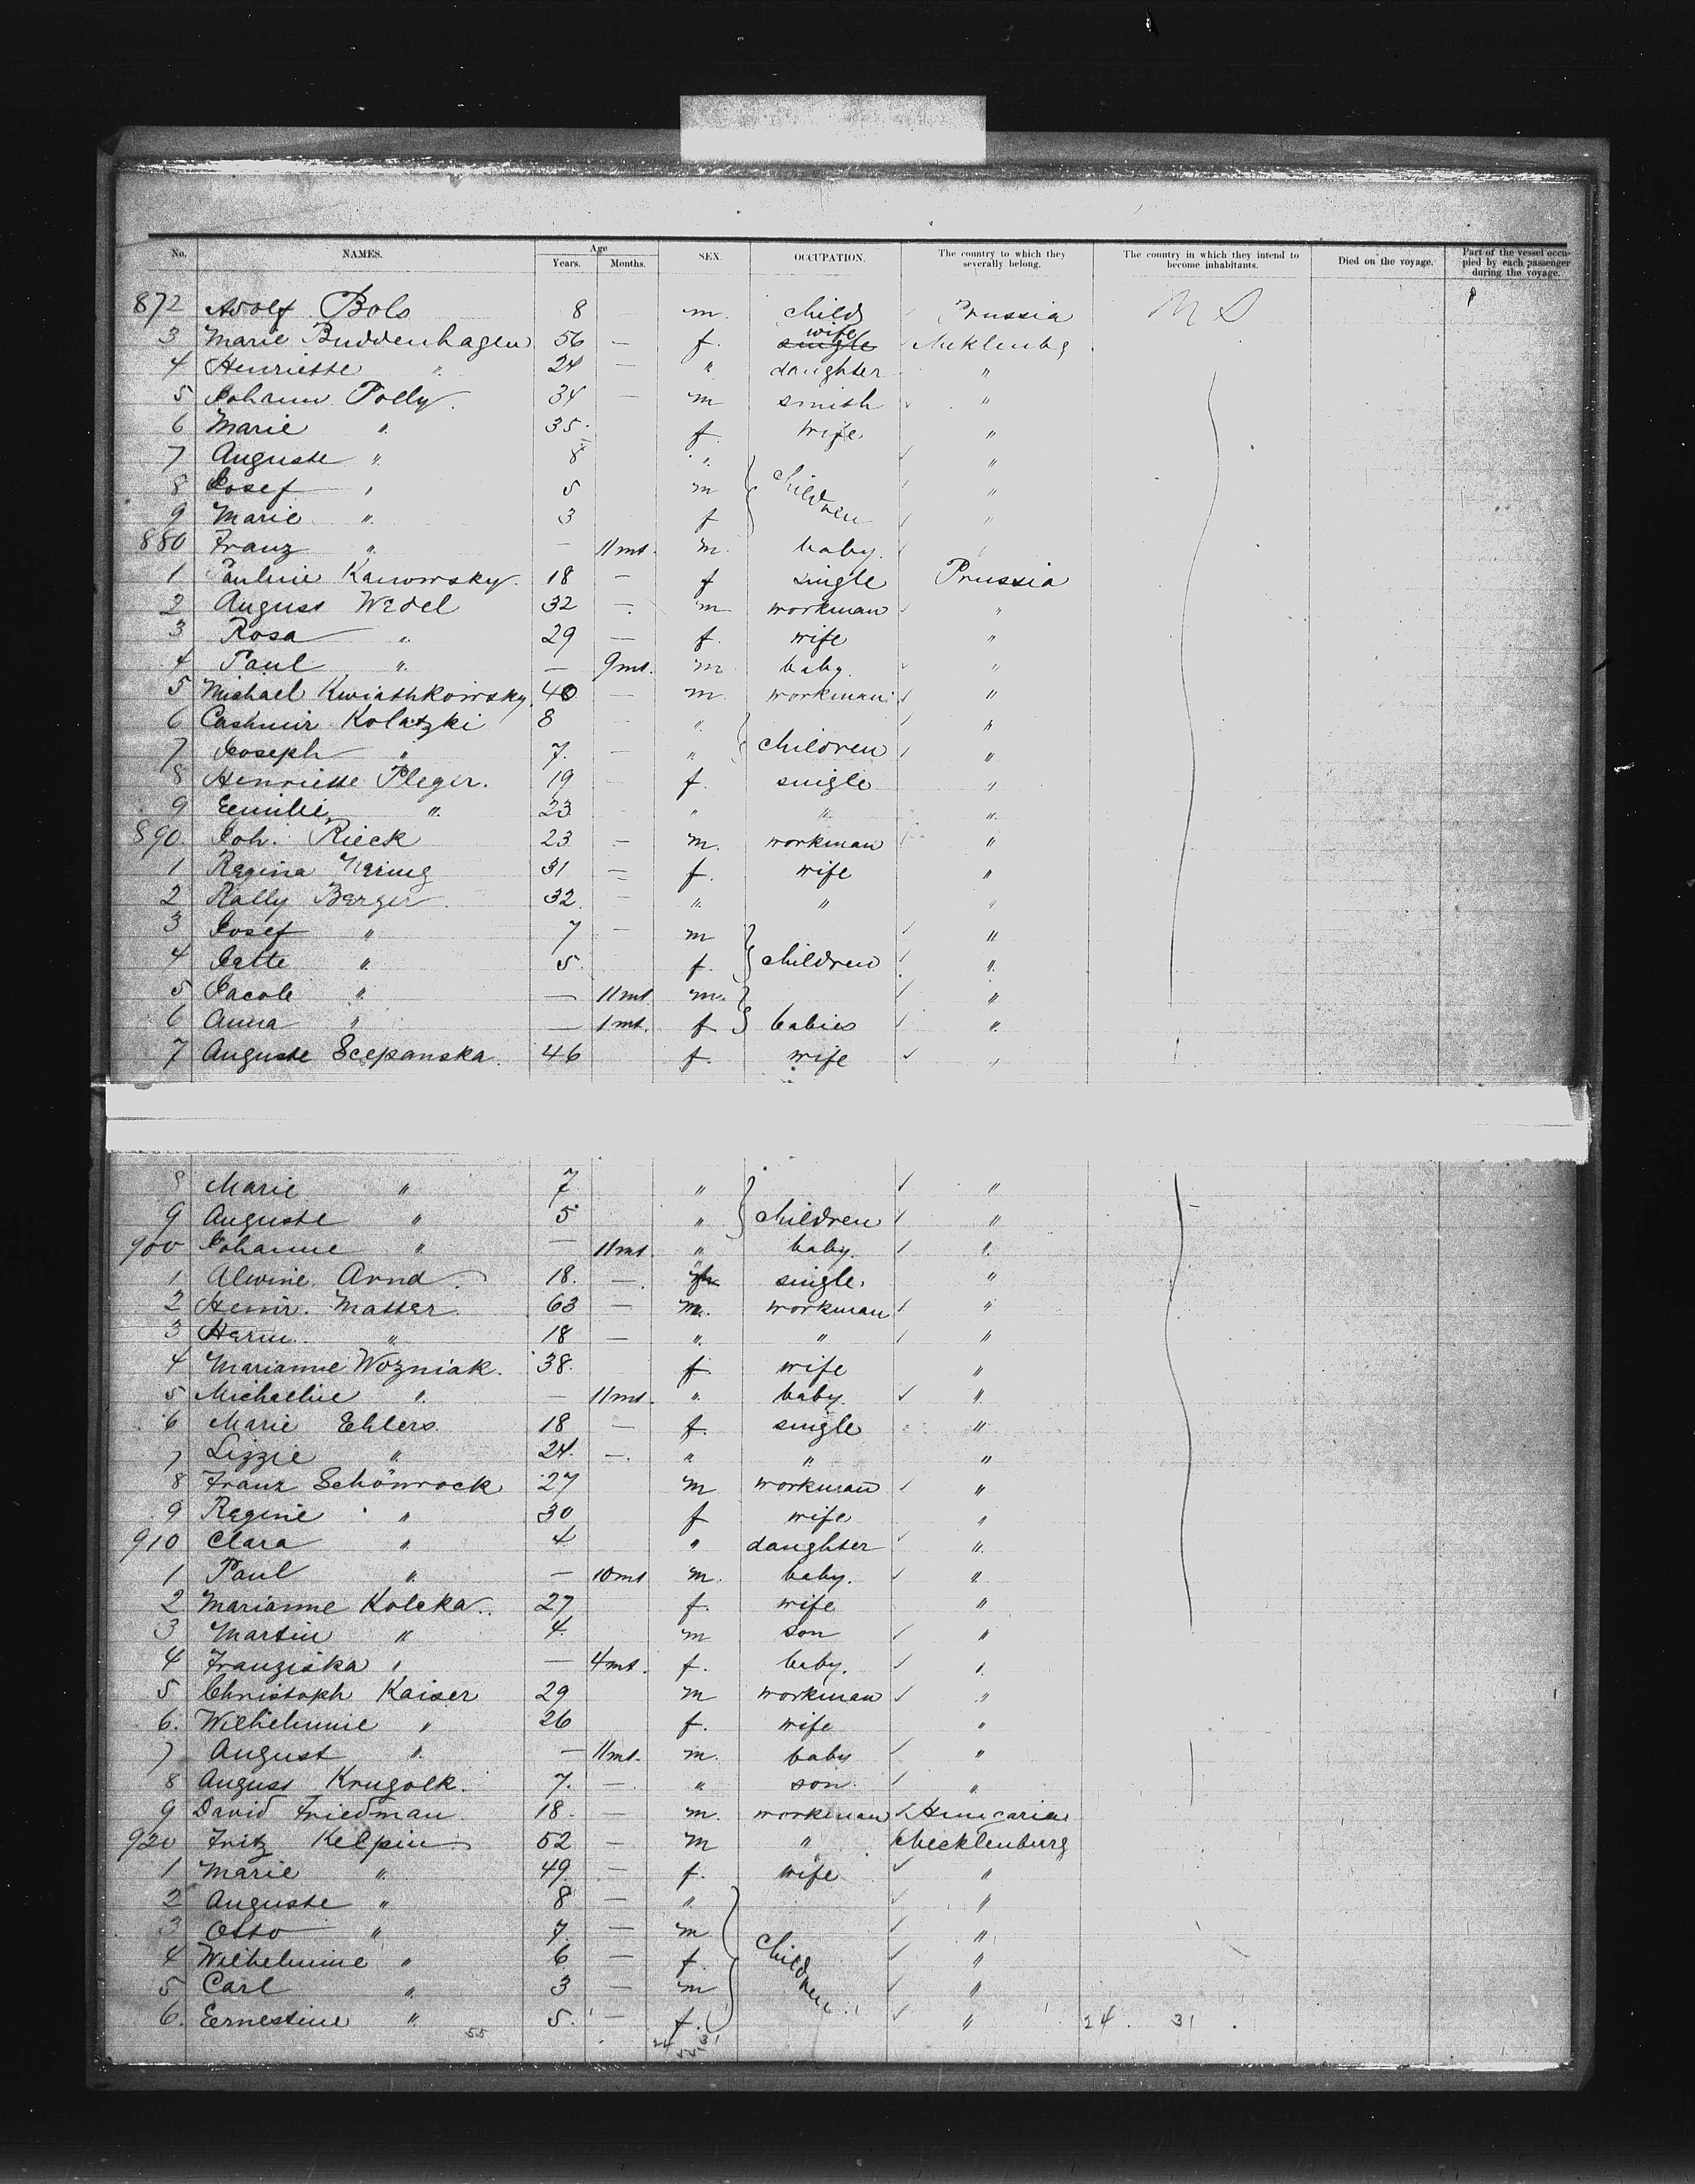 No. NAMES. Age Years. Months. SEX. OCCUPATION. The country to which they severally belong. The country in which they intend to become inhabitants. Died on the voyage. Part of the vessel occupied by each passenger during the voyage.
872 Adolf Bols 8 m. child Prussia
3 Marie Buddenhagen 56 — f. single wife Meklenbg
4 Henriette " 24 — " daughter "
5 Johann Polly 34 — m smith "
6 Marie " 35 f. wife "
7 Auguste " 8 " "
8 Josef " 5 m children "
9 Marie " 3 f "
880 Franz " — 11 mt. m. baby. "
1 Pauline Kanowsky. 18 — f single Prussia
2 August Wedel 32 — m workman "
3 Rosa " 29 — f. wife "
4 Paul " — 9 mt. m baby. "
5 Michael Kwiathkowsky 40 — m. workman "
6 Cashmir Kolatzki 8 " "
7 Joseph " 7. — " children "
8 Henriette Pleger. 19 — f. single "
9 Eemilie " 23 " " "
890 Joh. Rieck 23 — m. workman "
1 Regina Nering 31 — f. wife "
2 Rally Berger 32 — " " "
3 Josef " 7 — m "
4 Jette " 5. f. children "
5 Jacob " — 11 mt m. "
6 Anna " — 1 mt. f babies "
7 Auguste Scepanska 46 f. wife "
8 Marie " 7 " "
9 Auguste " 5 " children "
900 Johanne " — 11 mt. " baby. "
1 Alwine Arnd 18. — single. "
2 Heinr. Matter 63 — m. workman "
3 Herm. " 18 — " " "
4 Marianne Wozniak. 38. f wife "
5 Michaeline " — 11 mt. " baby. "
6 Marie Ehlers 18 — f. single "
7 Lizzie " 24. — " " "
8 Franz Schönrock 27 m workman "
9 Regine " 30 f wife "
910 Clara " 4 " daughter "
1 Paul " — 10 mt m. baby. "
2 Marianne Koleka.. 27 f. wife "
3 Martin " 4. m son "
4 Franziska " — 4 mt. f. baby. "
5 Christoph Kaiser 29 m workman "
6. Wilhelmine " 26 f. wife "
7 August " — 11 mt. m. baby "
8 August Krugolk. 7. — " son. "
9 David Friedman 18. — m. workman Hungaria
920 Fritz Kelpin 52 — m " Mecklenburg
1 Marie " 49 — f. wife "
2 Auguste " 8 — " "
3 Otto " 7. — m "
4 Wilhelmine " 6 — f. children "
5 Carl " 3 — m "
6. Eernestine " 5. — f. " 24. 31
55 24 31
55